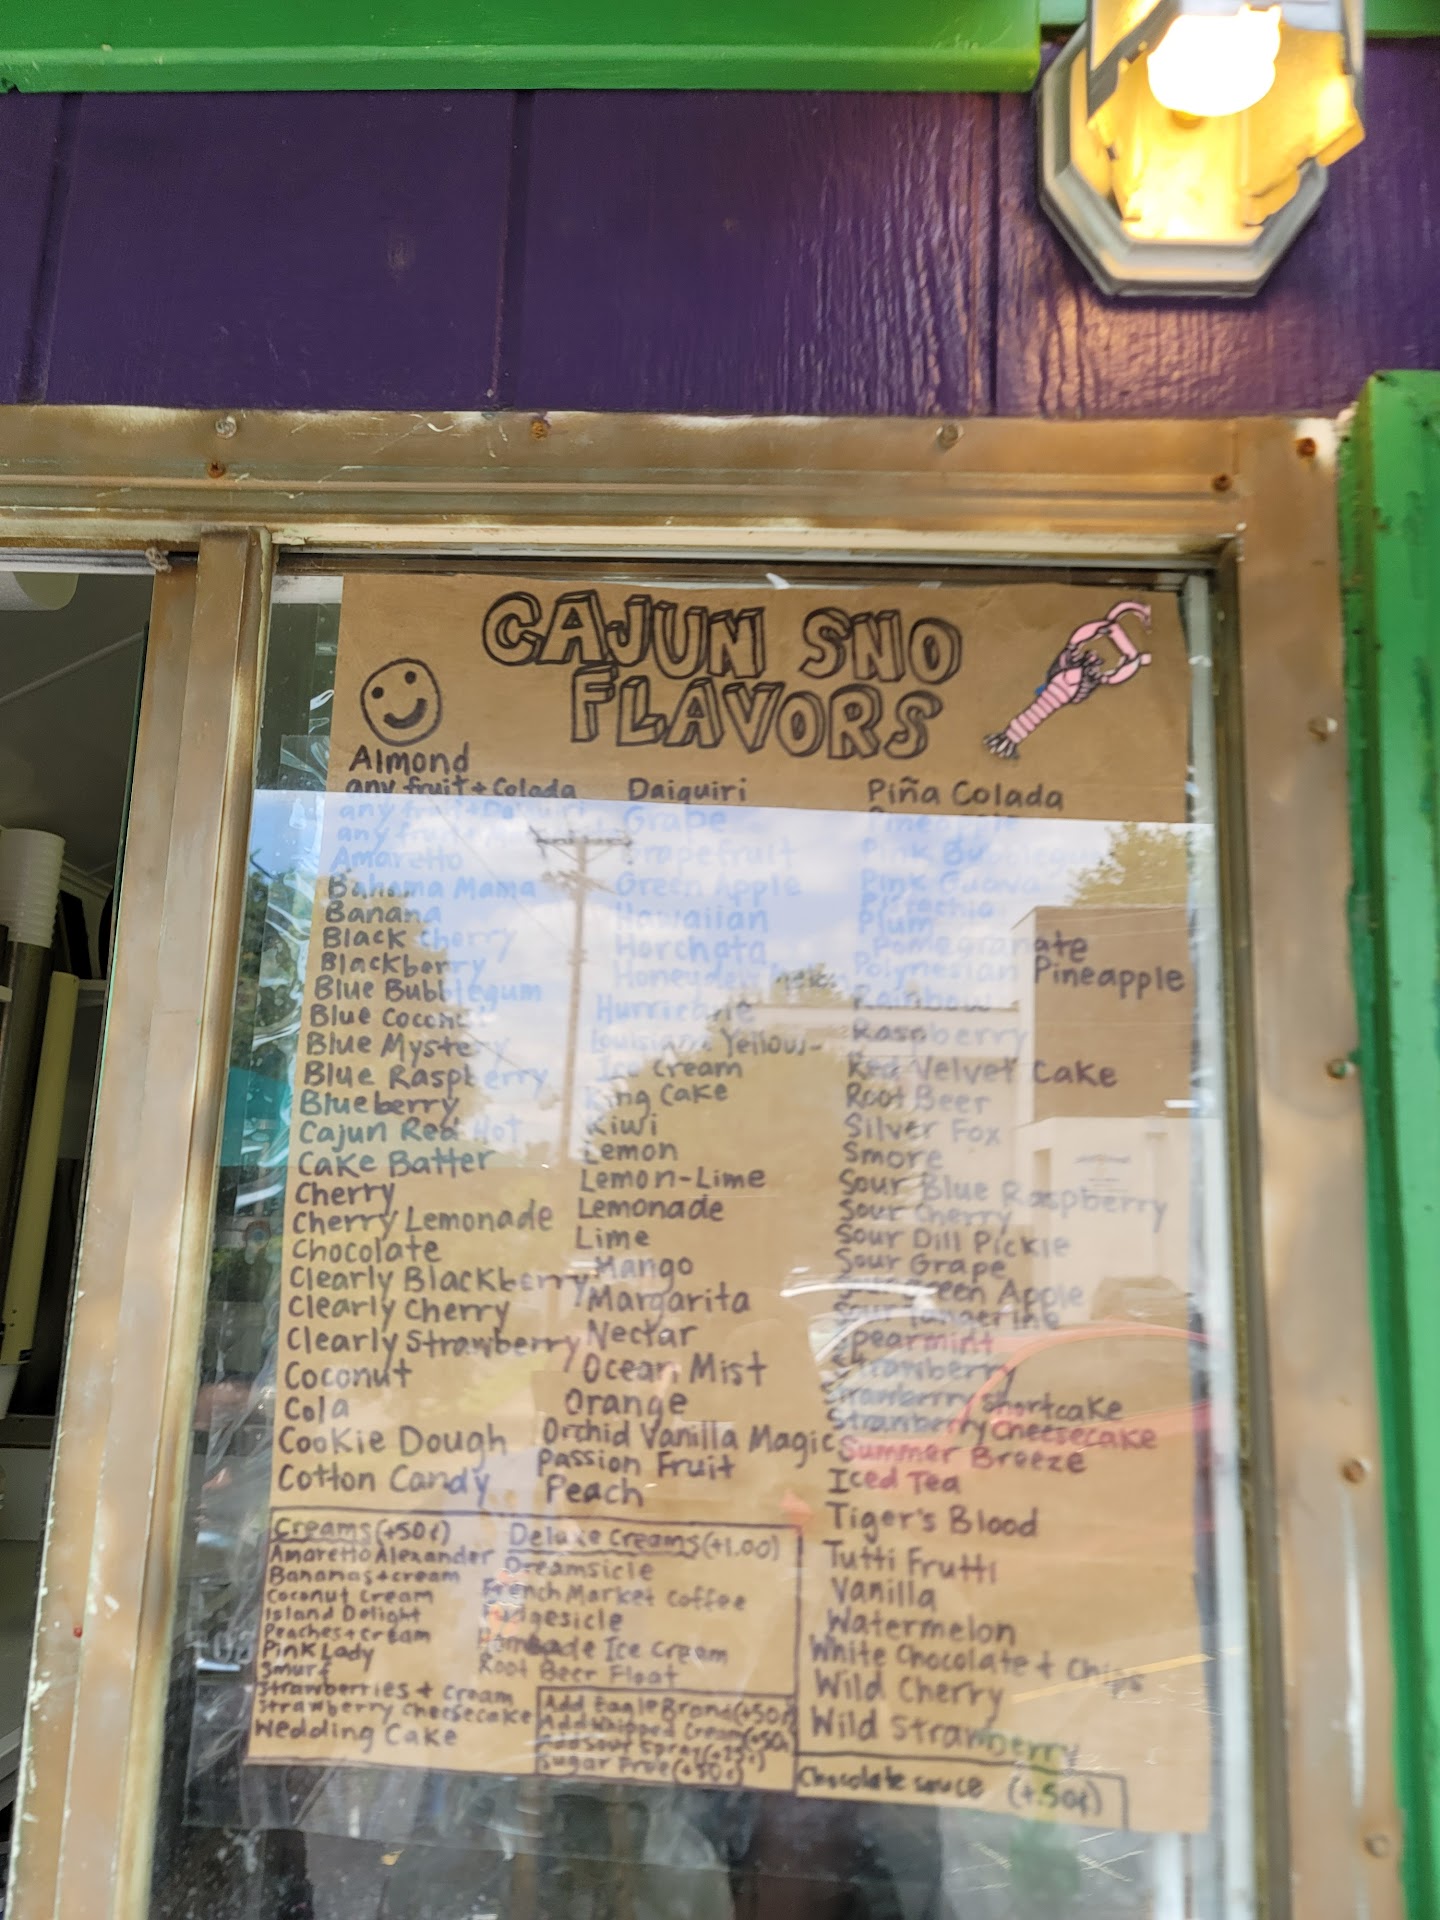 CAJUN SNO
FLAVORS
Almond
any fruit + Colada
any fruit + Daiquiri
any fruit +
Amaretto
Bahama Mama
Banana
Black Cherry
Blackberry
Blue Bubblegum
Blue Coconut
Blue Mystery
Blue Raspberry
Blueberry
Cajun Red Hot
Cake Batter
Cherry
Cherry Lemonade
Chocolate
Clearly Blackberry
Clearly Cherry
Clearly Strawberry
Coconut
Cola
Cookie Dough
Cotton Candy
Daiquiri
Grape
Grapefruit
Green Apple
Hawaiian
Horchata
Honeydew Melon
Hurricane
Louisiana Yellow-
Ice Cream
King Cake
Kiwi
Lemon
Lemon-Lime
Lemonade
Lime
Mango
Margarita
Nectar
Ocean Mist
Orange
Orchid Vanilla Magic
Passion Fruit
Peach
Piña Colada
Pineapple
Pink Bubblegum
Pink Guava
Pistachio
Plum
Pomegranate
Polynesian Pineapple
Rainbow
Raspberry
Red Velvet Cake
Root Beer
Silver Fox
Smore
Sour Blue Raspberry
Sour Cherry
Sour Dill Pickle
Sour Grape
Sour Green Apple
Sour Tangerine
Spearmint
Strawberry
Strawberry Shortcake
Strawberry Cheesecake
Summer Breeze
Iced Tea
Tiger's Blood
Tutti Frutti
Vanilla
Watermelon
White Chocolate + Chips
Wild Cherry
Wild Strawberry
Creams (+50¢)
Amaretto Alexander
Bananas + cream
Coconut Cream
Island Delight
Peaches + Cream
Pink Lady
Smurf
Strawberries + Cream
Strawberry Cheesecake
Wedding Cake
Deluxe Creams (+1.00)
Dreamsicle
French Market Coffee
Fudgesicle
Homemade Ice Cream
Root Beer Float
Add Eagle Brand (+50¢)
Add Whipped Cream (+50¢)
Add Sour Spray (+25¢)
Sugar Free (+50¢)
Chocolate sauce (+.50¢)